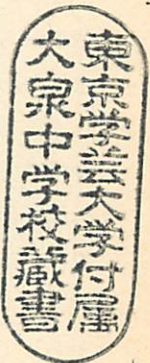 東京学芸大学付属
大泉中学校蔵書